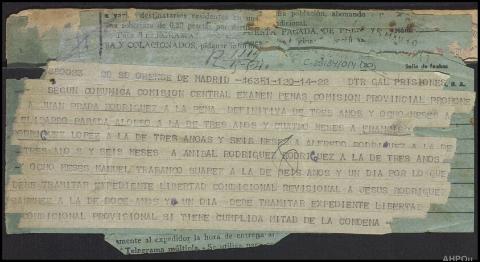 a varios destinatarios residentes en una misma población, abonando
una sobretasa de 0,20 pesetas por
PARA TELEGRAMA
PAGADA, DE
RA Y COLACIONADOS, pídanse
Sello de fechas
SD ORENSE DE MADRID -16351-120-14-22- DTR GAL PRISIONES
SEGUN COMUNICA COMISION CENTRAL EXAMEN PENAS COMISION PROVINCIAL PROPONE
A JUAN PRADA RODRIGUEZ A LA PENA DEFINITIVA DE TRES ANOS Y OCHO MESES A
ELISARDO PARADA ALONSO A LA DE TRES ANOS Y CUATRO MESES A
RODRIGUEZ LOPEZ A LA DE TRES ANOAS Y SEIS MESES A ALFREDO RODRIGUEZ A LA DE
TRES ANO S Y SEIS MESES A ANIBAL RODRIGUEZ RODRIGUEZ A LA DE TRES ANOS
Y OCHO MESES MANUEL TRABANCO SUAREZ A LA DE SEIS ANOS Y UN DIA POR LO QUE
DEBE TRAMITAR EXPEDIENTE LIBERTAD CONDICIONAL REVISIONAL A JESUS RODRIGUEZ
A LA DE DOCE ANOS Y UN DIA DEBE TRAMITAR EXPEDIENTE LIBERTAD
CONDICIONAL PROVISIONAL SI TIENE CUMPLIDA MITAD DE LA CONDENA
amente al expedidor la hora de entrega al
Telegrama múltiple. - Se utiliza para
AHPOu